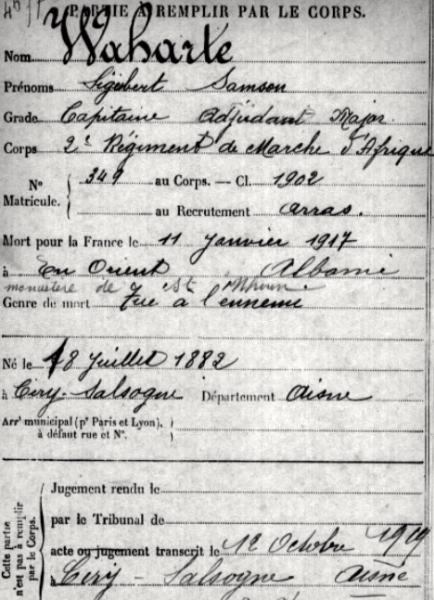 PARTIE A REMPLIR PAR LE CORPS.
Nom Waharte
Prénoms Sigebert Samson
Grade Capitaine Adjudant Major
Corps 2e Régiment de Marche d'Afrique
N° Matricule. 349 au Corps. — Cl. 1902
au Recrutement Arras.
Mort pour la France le 11 Janvier 1917
à En Orient Albanie
monastère de St
Genre de mort Tué à l'ennemi
Né le 18 Juillet 1882
à Ciry-Salsogne Département Aisne
Arrt municipal (pr Paris et Lyon),
à défaut rue et N°.
Cette partie n'est pas à remplir par le Corps.
Jugement rendu le
par le Tribunal de
acte ou jugement transcrit le 12 Octobre 1919
à Ciry-Salsogne Aisne